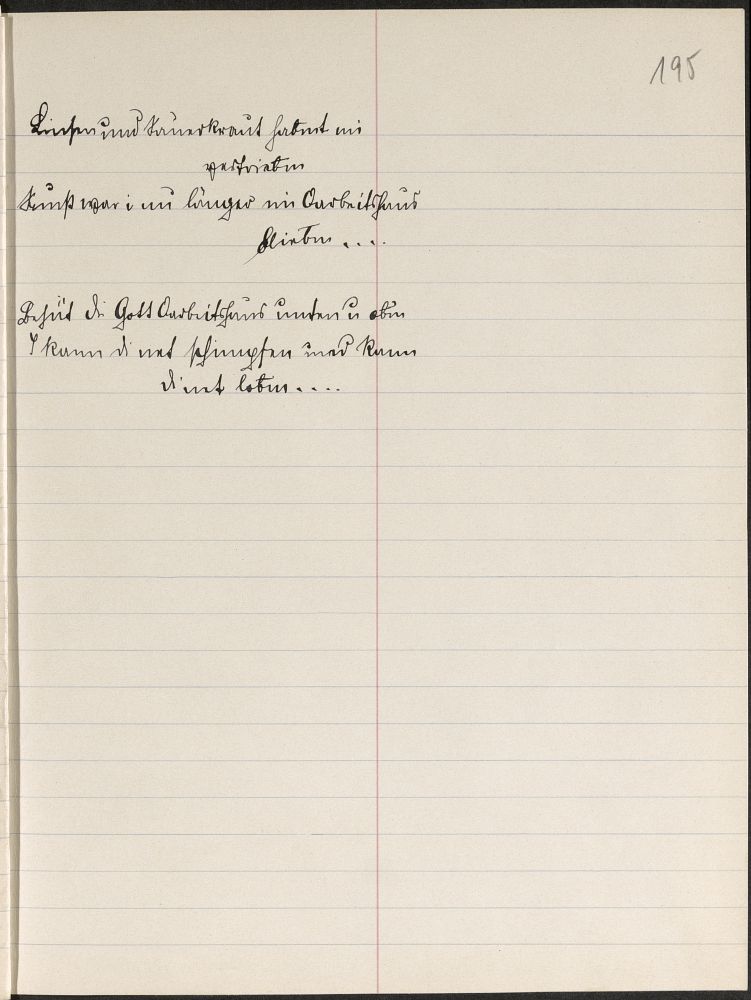 195
Linsen und Sauerkraut habnt mi
vertriebn
Sunst war i nu länger im Oarbeitshaus
bliebn ....
Behüt di Gott Oarbeitshaus unten u obn
I kann di net schimpfen und kann
di net lobn ....